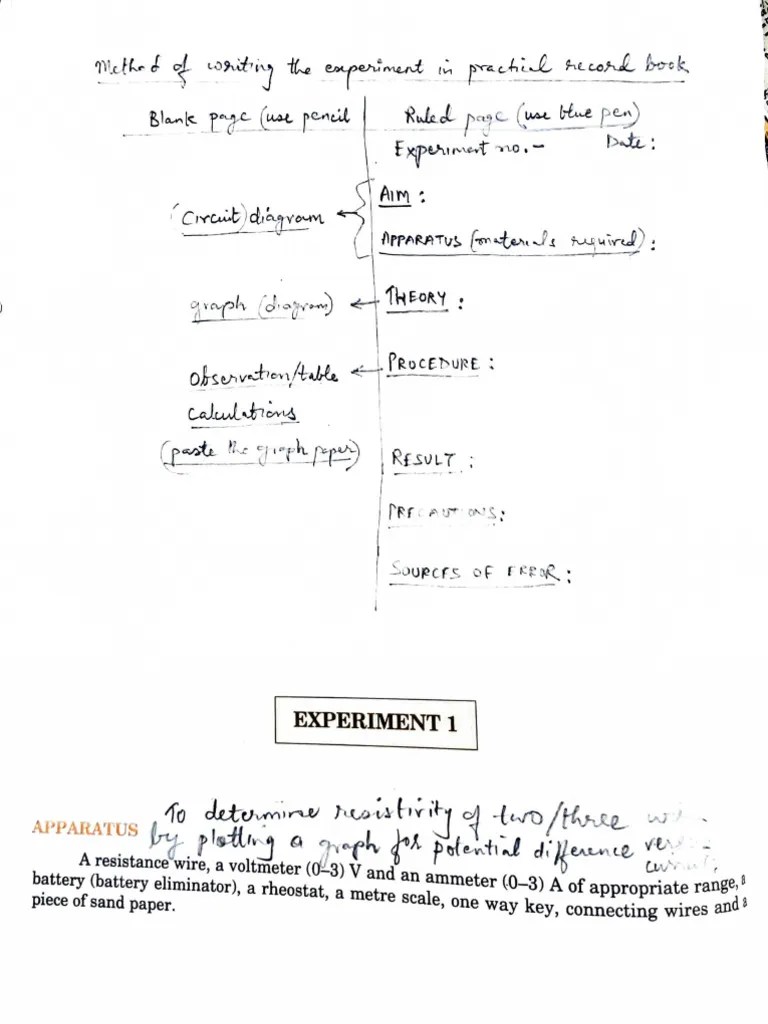 Method of writing the experiment in practical record book
Blank page (use pencil
Ruled page (use blue pen)
Experiment no.-
Date:
AIM :
(Circuit) diagram
APPARATUS (materials required):
graph (diagram)
THEORY :
PROCEDURE :
Observation/table
Calculations
(paste the graph paper)
RESULT :
PRECAUTIONS:
SOURCES OF ERROR :
EXPERIMENT 1
To determine resistivity of two/three
APPARATUS
by plotting a graph for potential difference
A resistance wire, a voltmeter (0–3) V and an ammeter (0–3) A of appropriate range, a
battery (battery eliminator), a rheostat, a metre scale, one way key, connecting wires and a
piece of sand paper.